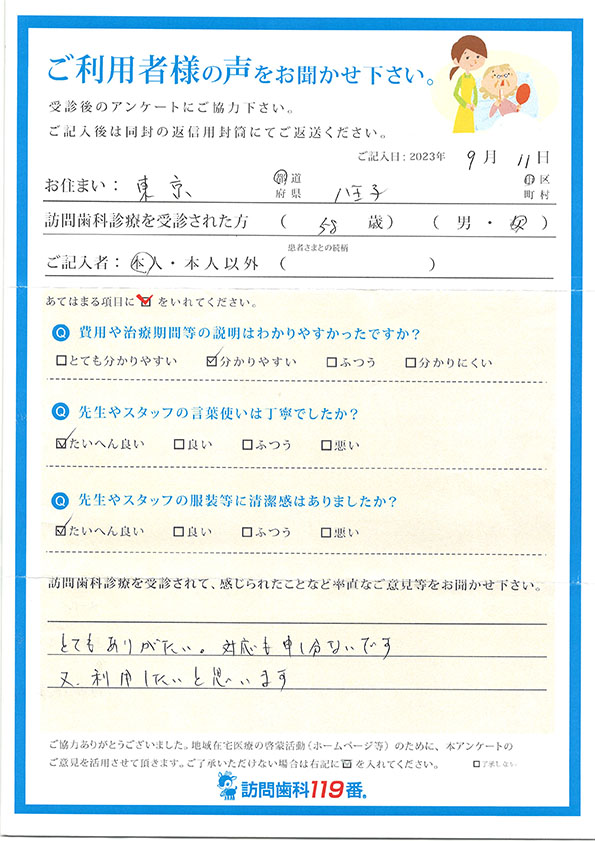 ご利用者様の声をお聞かせ下さい。
受診後のアンケートにご協力下さい。
ご記入後は同封の返信用封筒にてご返送ください。
ご記入日：2023年 9月 11日
お住まい： 東京 都道府県 八王子 市区町村
訪問歯科診療を受診された方 （ 58 歳） （ 男・女 ）
患者さまとの続柄
ご記入者：本人・本人以外（ ）
あてはまる項目に☑をいれてください。
Q 費用や治療期間等の説明はわかりやすかったですか？
□とても分かりやすい ☑分かりやすい □ふつう □分かりにくい
Q 先生やスタッフの言葉使いは丁寧でしたか？
☑たいへん良い □良い □ふつう □悪い
Q 先生やスタッフの服装等に清潔感はありましたか？
☑たいへん良い □良い □ふつう □悪い
訪問歯科診療を受診されて、感じられたことなど率直なご意見等をお聞かせ下さい。
とてもありがたい。対応も申し分ないです
又、利用したいと思います
ご協力ありがとうございました。地域在宅医療の啓蒙活動（ホームページ等）のために、本アンケートの
ご意見を活用させて頂きます。ご了承いただけない場合は右記に☑を入れてください。 □了承しない
訪問歯科119番®